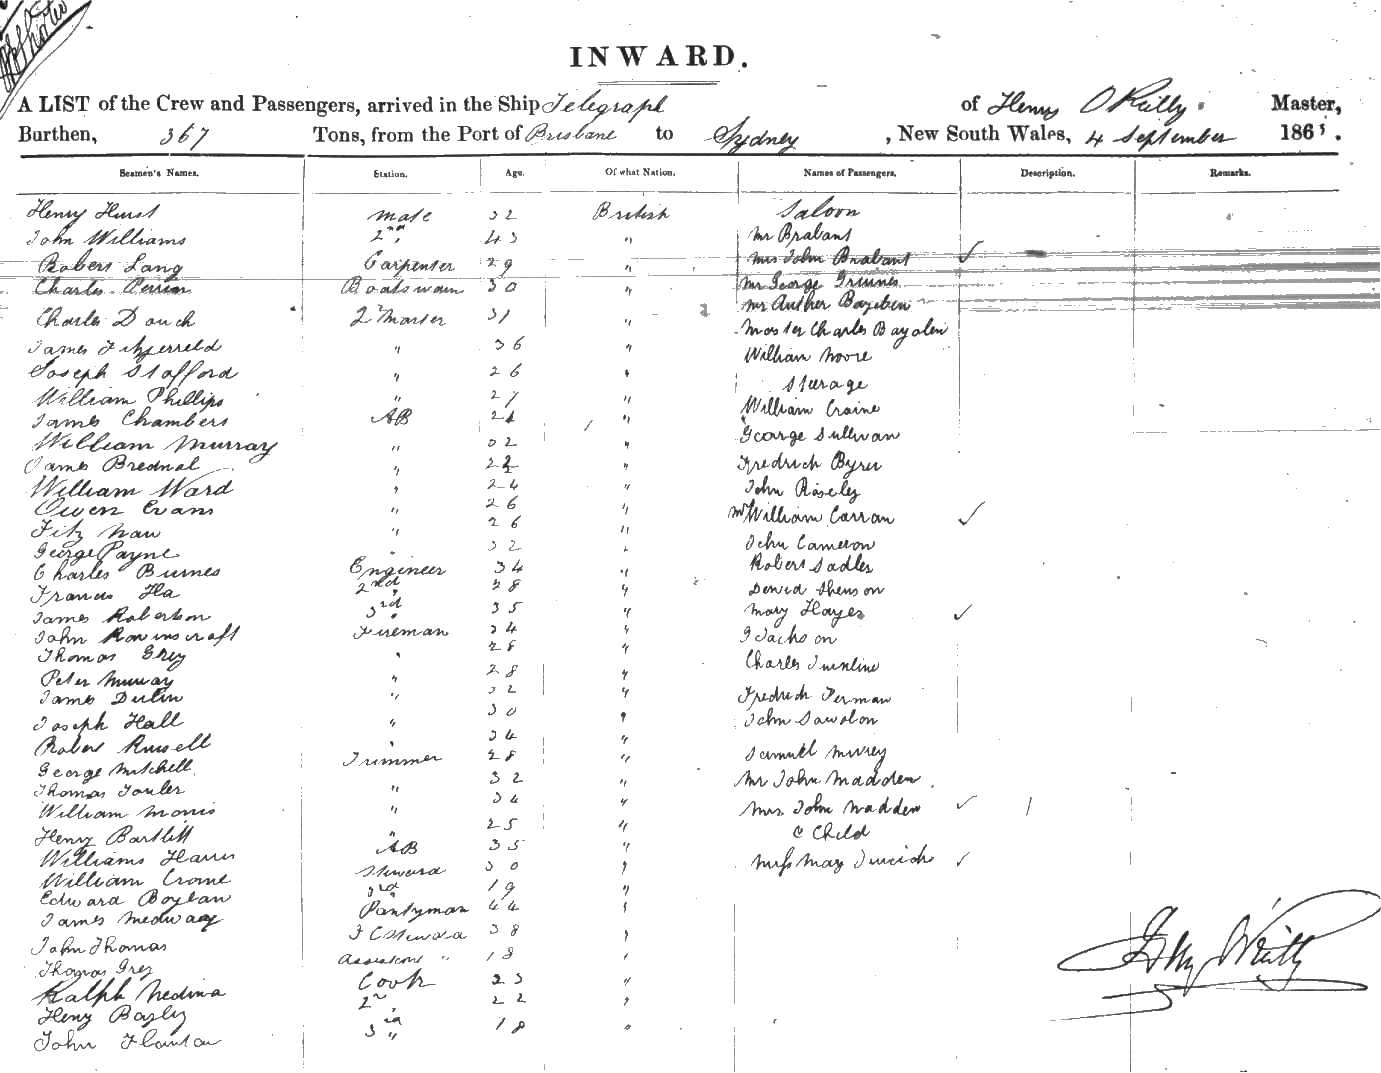 INWARD.
A LIST of the Crew and Passengers, arrived in the Ship Telegraph of Henry O'Reilly. Master,
Burthen, 367 Tons, from the Port of Brisbane to Sydney, New South Wales, 4 September 1865.
Seamen's Names. Station. Age. Of what Nation. Names of Passengers. Description. Remarks.
Henry Hurst Mate 32 British Saloon
John Williams 2nd 43 " Mr Brabant
Robert Lang Carpenter 29 " Mrs John Brabant
Charles Boatswain 30 " Mr George Grimes
Charles Douch 2 Master 31 " Mr
James Fitzjerreld " 36 " Master Charles
Joseph Stafford " 26 " William Moore
William Phillips " 27 " Sturage
James Chambers AB 24 " William Craine
William Murray " 32 " George Sullivan
James Brednal " 22 " Fredrich Byrer
William Ward " 24 " John Roseley
Owen Evans " 26 " Mr William Carran
Fitz " 26 "
George Payne " 32 " John Cameron
Charles Burnes Engineer 34 " Robert Sadler
Francis 2nd " 28 " David
James Robertson 3rd " 35 " Mary Hayes
John Fireman 34 " J Jackson
Thomas Grey " 28 " Charles
Peter Murray " 28 "
James " 32 " Fredrich
Joseph Hall " 30 " John
Robert Russell " 34 "
George Mitchell Trimmer 28 " Samuel
Thomas " 32 " Mr John Madden
William Morris " 34 " Mrs John Madden
Henry Bartlett " 25 " & Child
Williams Harris AB 35 " Miss May
William Crome Steward 30 "
Edward Boylan 3rd " 19 "
James Medway Pantyman 44 "
John Thomas F C Steward 38 "
Thomas Grey Assistant " 18 "
Ralph Medina Cook 23 "
Henry Bagley 2nd " 22 "
John 3rd " 18 "
Hy O'Reilly